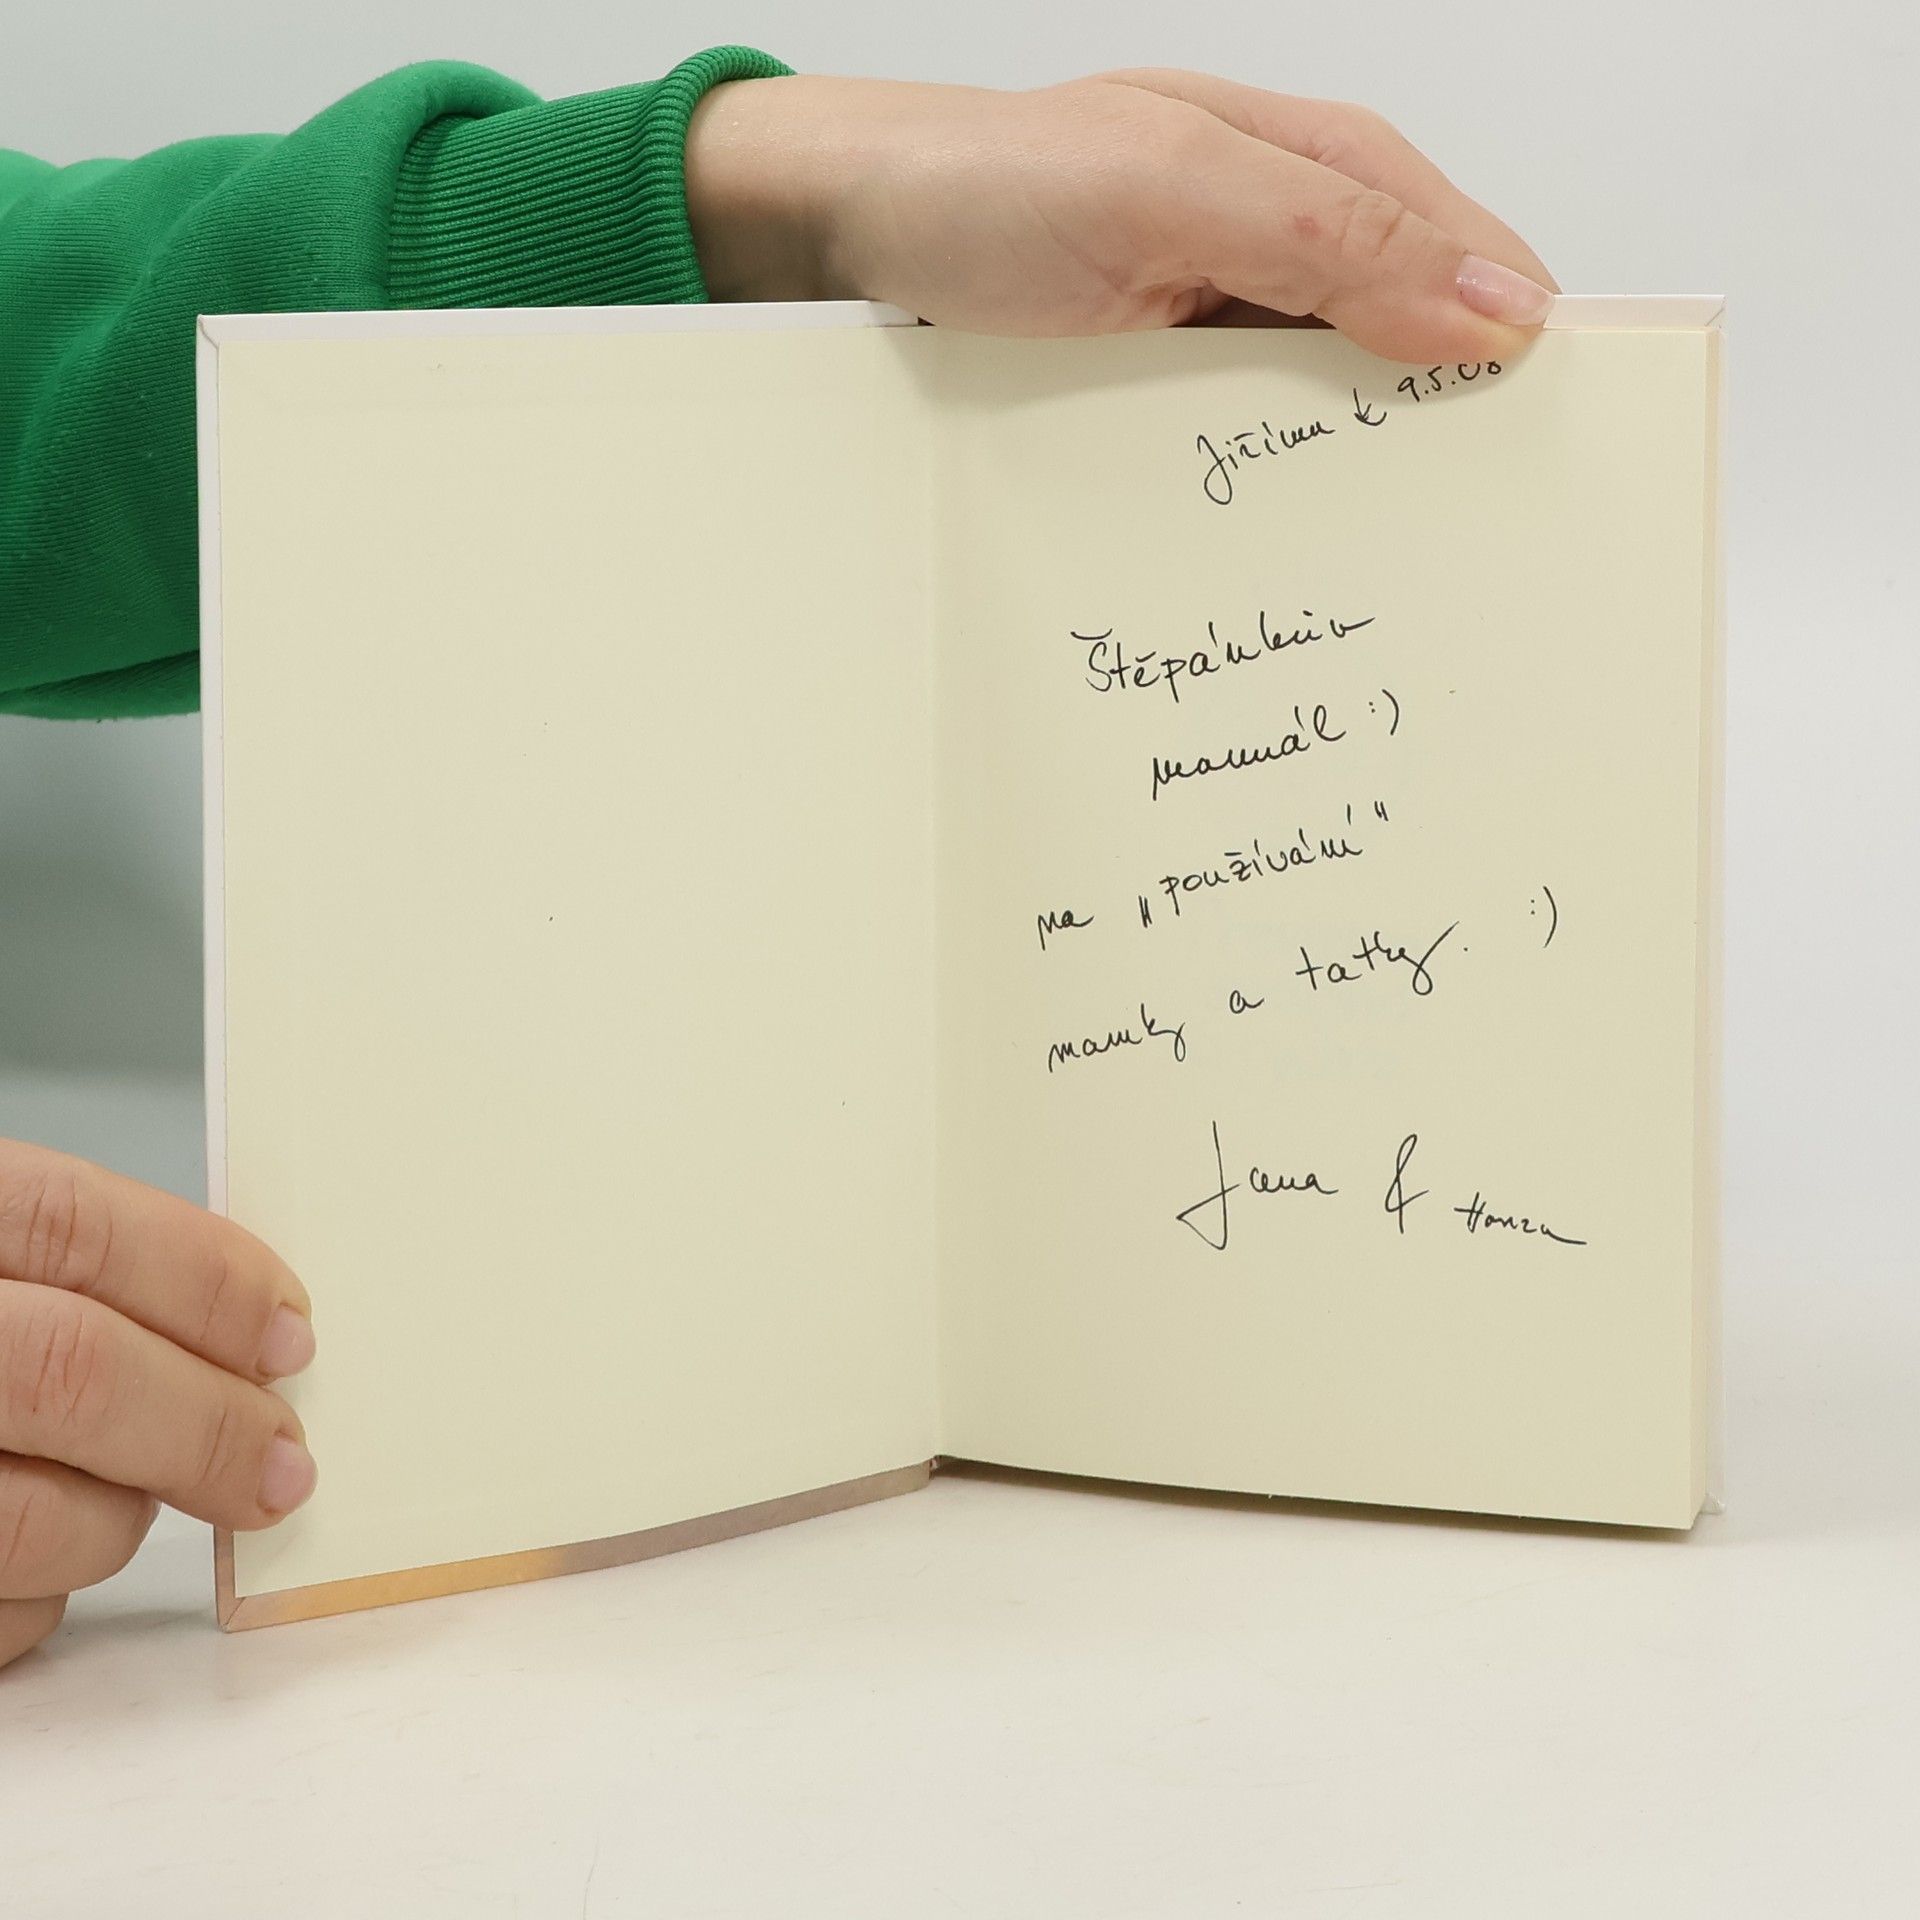 Jiřímu k 9.5.08
Štěpánkův
manuál :)
na „používání“
mamky a tatky. :)
Jana & Honza